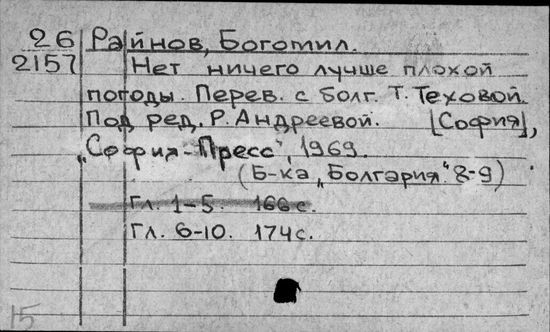 26 Райнов, Богомил.
2157 Нет ничего лучше плохой
погоды. Перев. с болг. Т. Теховой.
Под ред. Р. Андреевой. [София],
„София-Пресс", 1969.
(Б-ка „Болгария" 8-9)
Гл. 1-5. 166 с.
Гл. 6-10. 174 с.
15